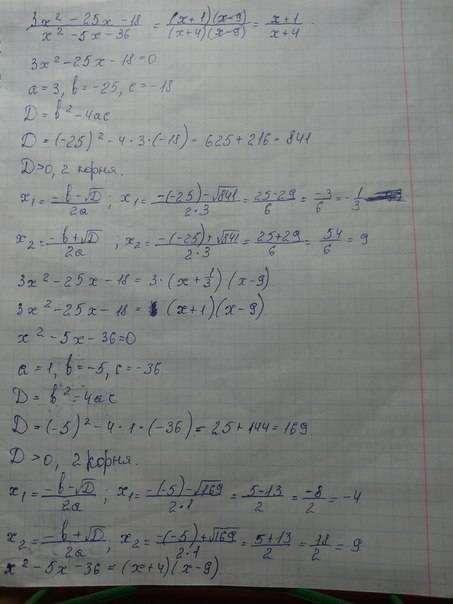 (3x² - 25x - 18)/(x² - 5x - 36) = ((x+1)(x-9))/((x+4)(x-9)) = (x+1)/(x+4)
3x² - 25x - 18 = 0
a = 3, b = -25, c = -18
D = b² - 4ac
D = (-25)² - 4·3·(-18) - 625 + 216 = 841
D>0, 2 корня.
x₁ = (-b-√D)/2a, x₁ = (-(-25)-√841)/(2·3) = (25-29)/6 = -3/6 = -1/3
x₂ = (-b+√D)/2a, x₂ = (-(-25)+√841)/(2·3) = (25+29)/6 = 54/6 = 9
3x² - 25x - 18 = 3·(x + 1/3)·(x-9)
3x² - 25x - 18 = (x+1)(x-9)
x² - 5x - 36 = 0
a = 1, b = -5, c = -36
D = b² - 4ac
D = (-5)² - 4·1·(-36) = 25 + 144 = 169.
D>0, 2 корня.
x₁ = (-b-√D)/2a, x₁ = (-(-5)-√169)/(2·1) = (5-13)/2 = -8/2 = -4
x₂ = (-b+√D)/2a, x₂ = (-(-5)+√169)/(2·1) = (5+13)/2 = 18/2 = 9
x² - 5x - 36 = (x+4)(x-9)